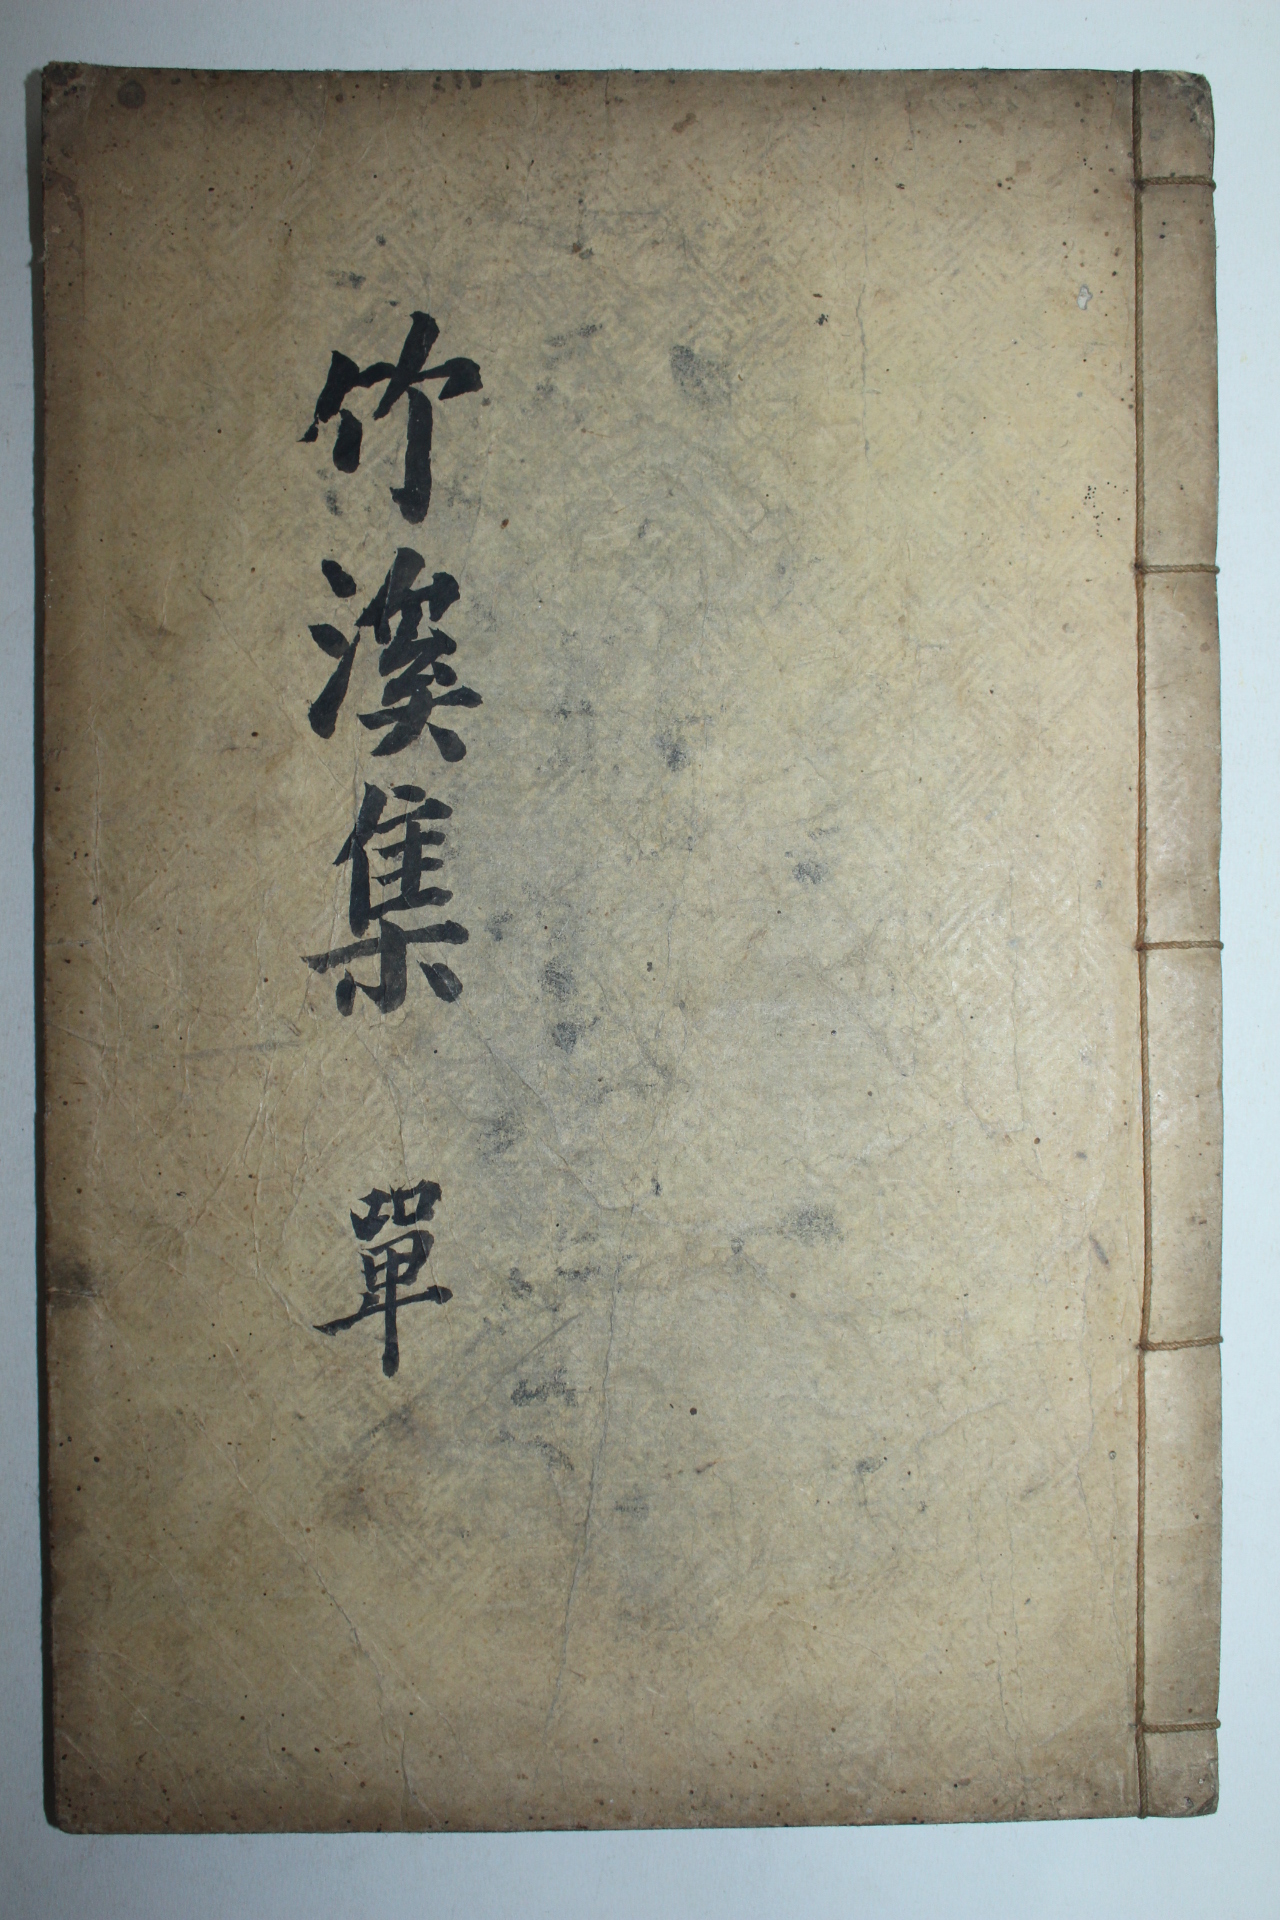 竹溪集 單